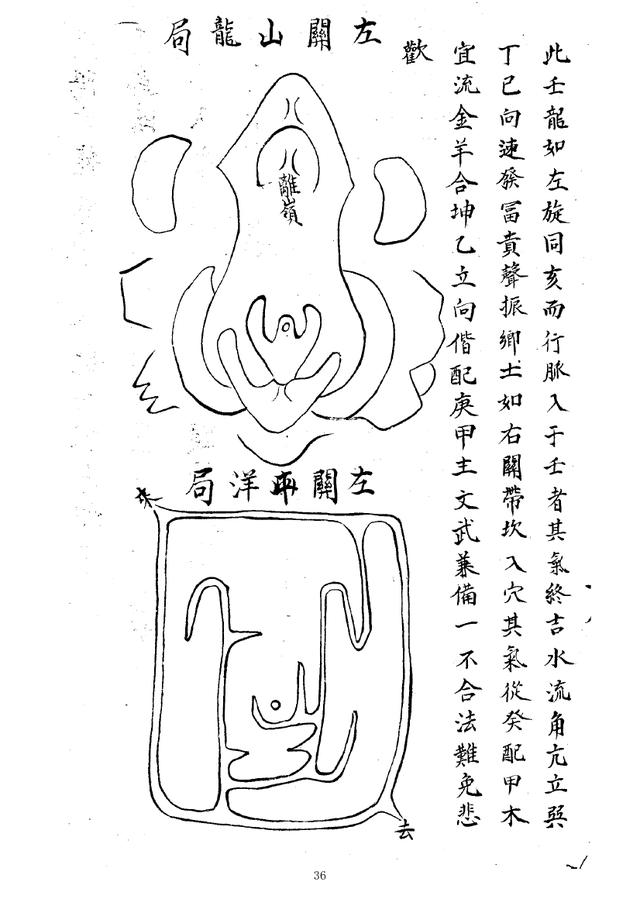 此壬龍如左旋同亥而行脈入于壬者其氣終吉水流角亢立巽
丁巳向速發冨貴聲振鄉土如右關帶坎入穴其氣從癸配甲木
宜流金羊合坤乙立向偕配庚甲主文武兼備一不合法難免悲
歡
左關山龍局
離嶺
左關平洋局
來
去
36